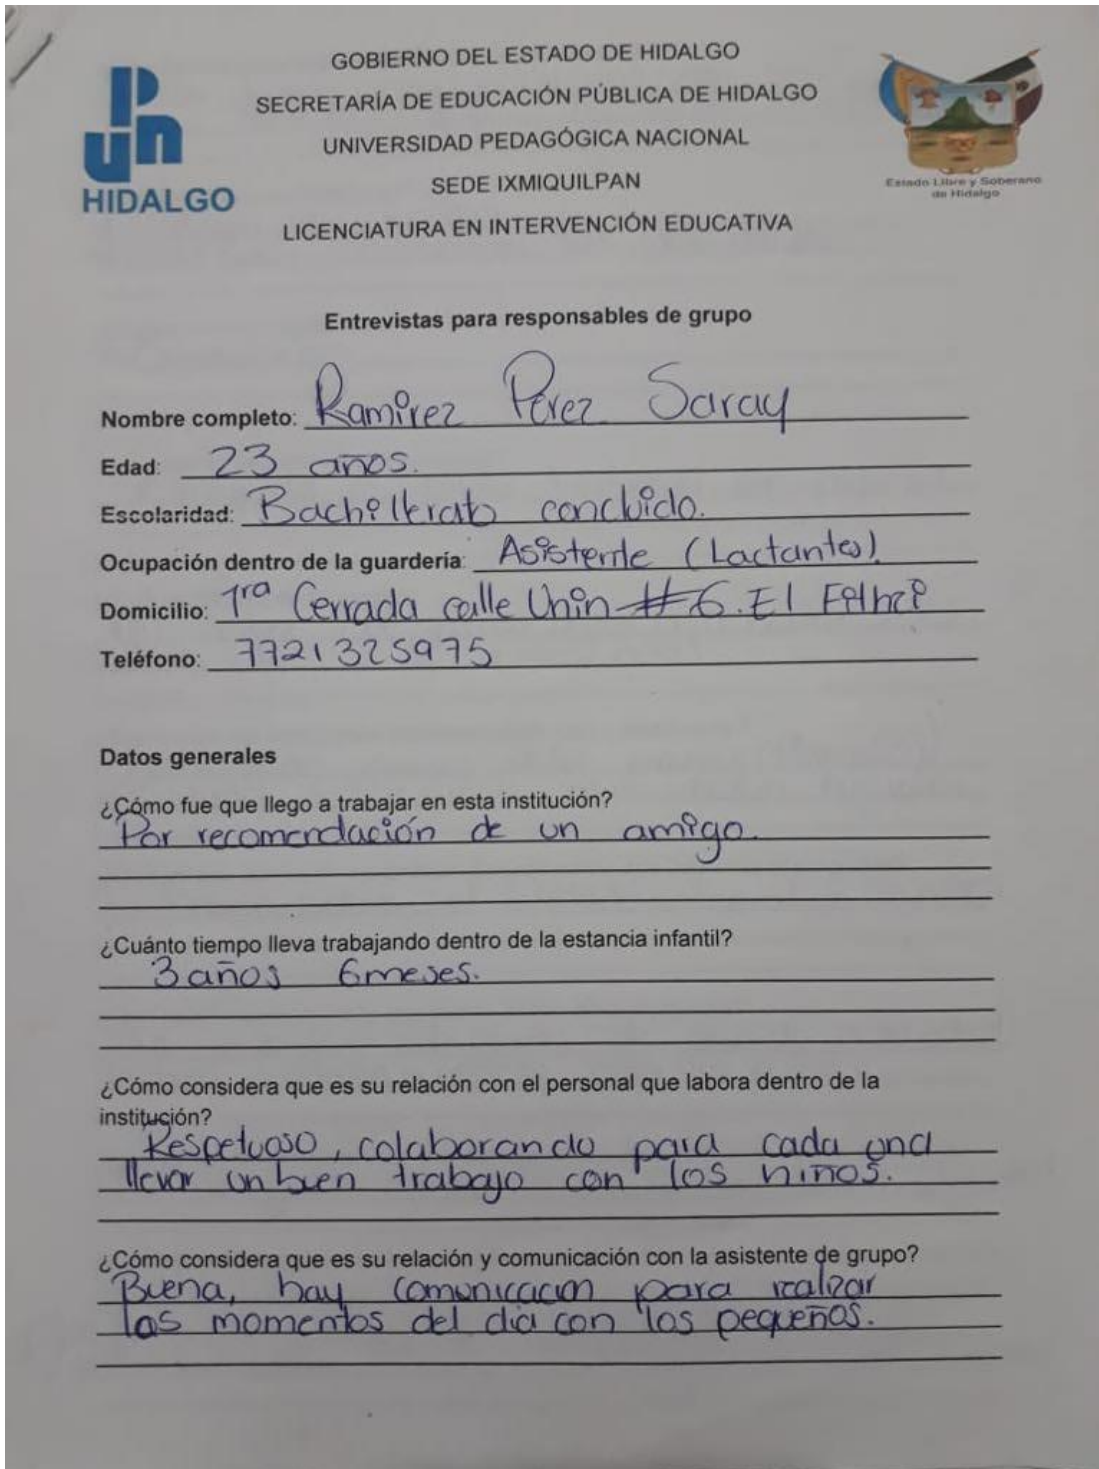 GOBIERNO DEL ESTADO DE HIDALGO
SECRETARÍA DE EDUCACIÓN PÚBLICA DE HIDALGO
UNIVERSIDAD PEDAGÓGICA NACIONAL
SEDE IXMIQUILPAN
LICENCIATURA EN INTERVENCIÓN EDUCATIVA
upn
HIDALGO
Estado Libre y Soberano
de Hidalgo
Entrevistas para responsables de grupo
Nombre completo: Ramirez Perez Saray
Edad: 23 años.
Escolaridad: Bachillerato concluido.
Ocupación dentro de la guardería: Asistente (Lactantes)
Domicilio: 1ra Cerrada calle #6. El
Teléfono: 7721325975
Datos generales
¿Cómo fue que llego a trabajar en esta institución?
Por recomendación de un amigo.
¿Cuánto tiempo lleva trabajando dentro de la estancia infantil?
3 años 6 meses.
¿Cómo considera que es su relación con el personal que labora dentro de la
institución?
Respetuoso, colaborando para cada una
llevar un buen trabajo con los niños.
¿Cómo considera que es su relación y comunicación con la asistente de grupo?
Buena, hay comunicacion para realizar
los momentos del dia con los pequeños.